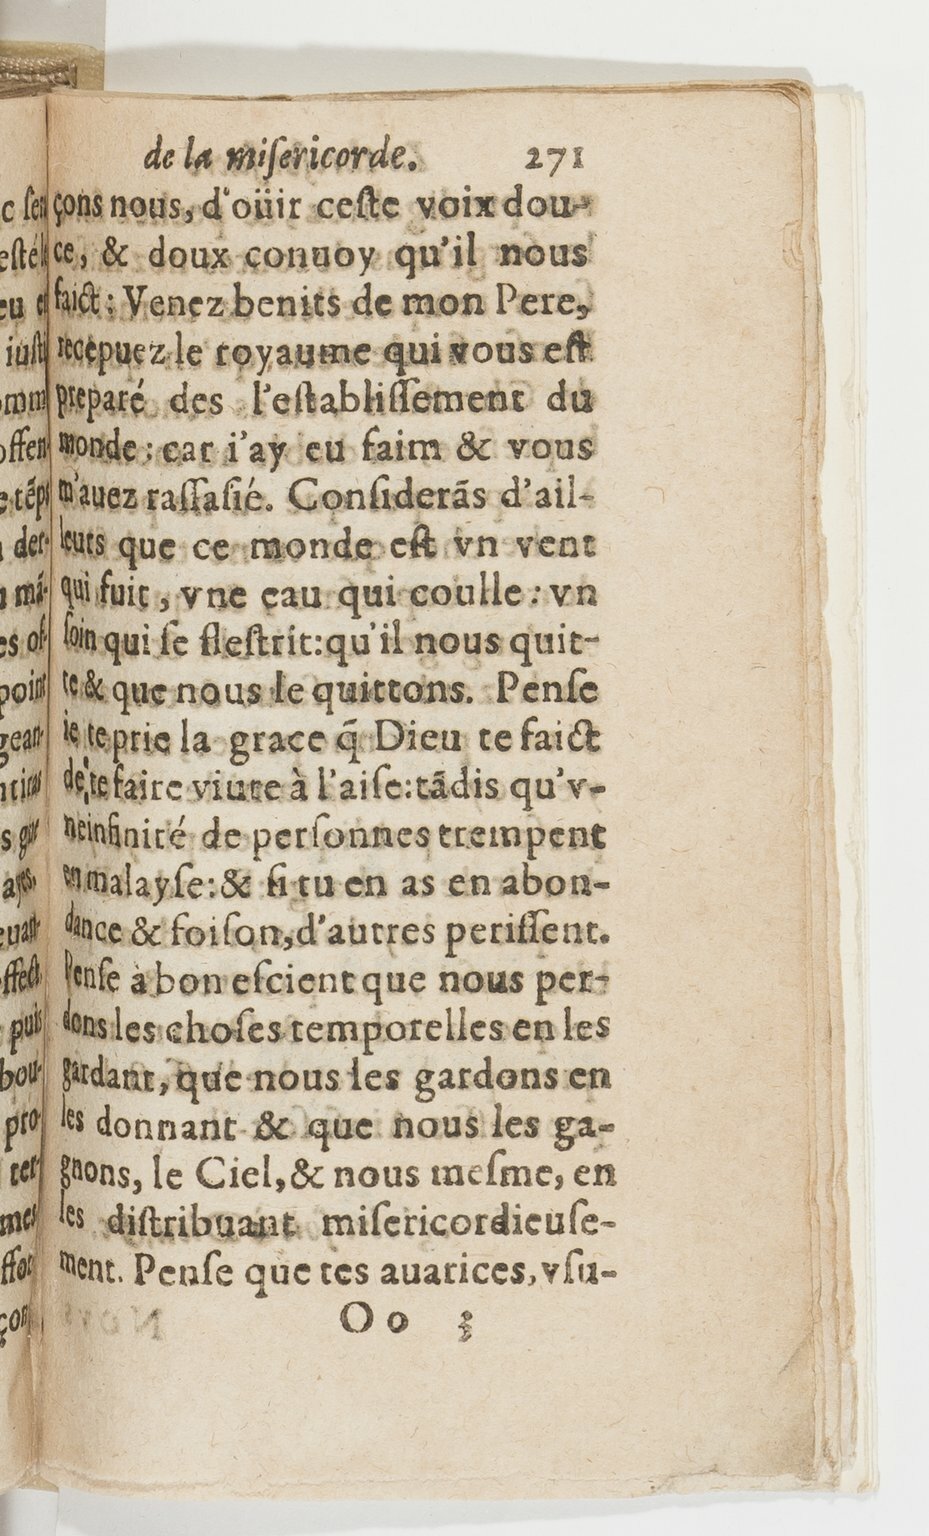 de la miſericorde. 271
çons nous, d'oüir ceſte voix dou-
ce, & doux conuoy qu'il nous
faict: Venez benits de mon Pere,
recepuez le royaume qui vous eſt
preparé des l'eſtabliſſement du
monde: car i'ay eu faim & vous
m'auez raſſaſié. Conſiderãs d'ail-
leurs que ce monde eſt vn vent
qui fuit, vne eau qui coulle: vn
foin qui ſe fleſtrit: qu'il nous quit-
te & que nous le quittons. Penſe
ie te prie la grace q̃ Dieu te faict
de te faire viure à l'aiſe: tãdis qu'v-
ne infinité de perſonnes trempent
en malayſe: & ſi tu en as en abon-
dance & foiſon, d'autres periſſent.
Penſe à bon eſcient que nous per-
dons les choſes temporelles en les
gardant, que nous les gardons en
les donnant & que nous les ga-
gnons, le Ciel, & nous meſme, en
les diſtribuant miſericordieuſe-
ment. Penſe que tes auarices, vſu-
Oo 3